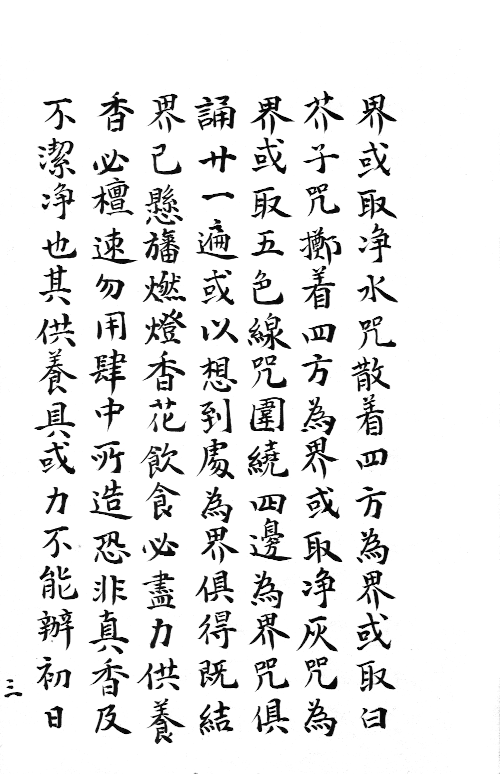 界或取净水咒散着四方為界或取白
芥子咒擲着四方為界或取净灰咒為
界或取五色線咒圍繞四邊為界咒俱
誦廿一遍或以想到處為界俱得既結
界已懸旛燃燈香花飲食必盡力供養
香必檀速勿用肆中所造恐非真香及
不潔净也其供養具或力不能辦初日
三